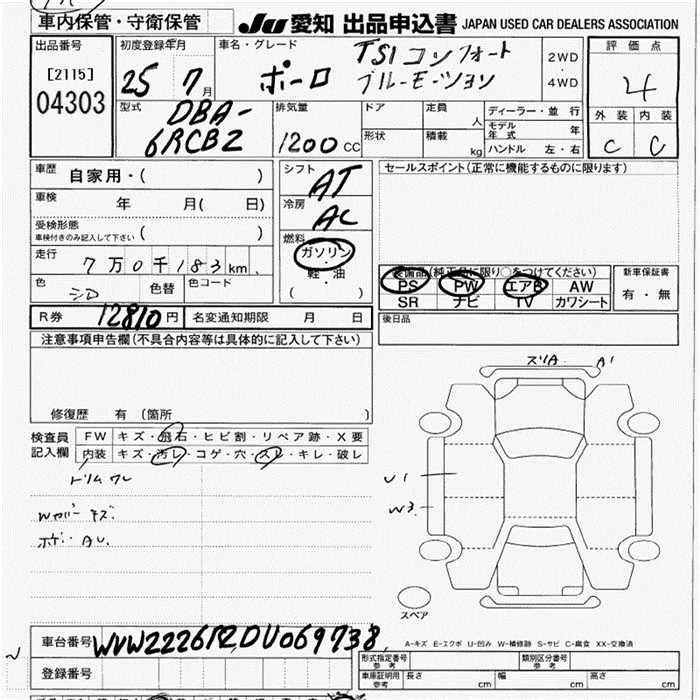 車内保管・守衛保管
JU 愛知 出品申込書 JAPAN USED CAR DEALERS ASSOCIATION
出品番号
[2115]
04303
初度登録年月
25 年 7 月
車名・グレード
ポーロ
TSI コンフォート
ブルーモーション
2WD
・
4WD
評価点
4
外装 内装
C C
型式
DBA-
6RCBZ
排気量
1200 CC
ドア
形状
定員 人
積載 kg
ディーラー・並行
モデル年式 年
ハンドル 左・右
車歴
自家用・( )
車検 年 月( 日)
受検形態
車検付きのみ記入して下さい ( )
走行
7万0千183km
色 シロ 色替 色コード
シフト
AT
冷房
AC
燃料
ガソリン
・
軽・油
( )
セールスポイント(正常に機能するものに限ります)
装備品(純正品に限り○をつけてください)
PS PW エアB AW
SR ナビ TV カワシート
新車保証書
有・無
R券 12810円 名変通知期限 月 日
後日品
注意事項申告欄(不具合内容等は具体的に記入して下さい)
修復歴 有 (箇所 )
検査員
記入欄
FW キズ・飛石・ヒビ割・リペア跡・X要
内装 キズ・汚レ・コゲ・穴・スレ・キレ・破レ
トリム ワレ
キズ
AU
ズリA A1
U1
W3
スペア
車台番号 WVWZZZ6RZDU069738
登録番号
A-キズ E-エクボ U-凹み W-補修跡 S-サビ C-腐食 XX-交換済
形式指定番号
参考
類別区分番号
参考
車庫証明用
参考
長さ cm 幅 cm 高さ cm